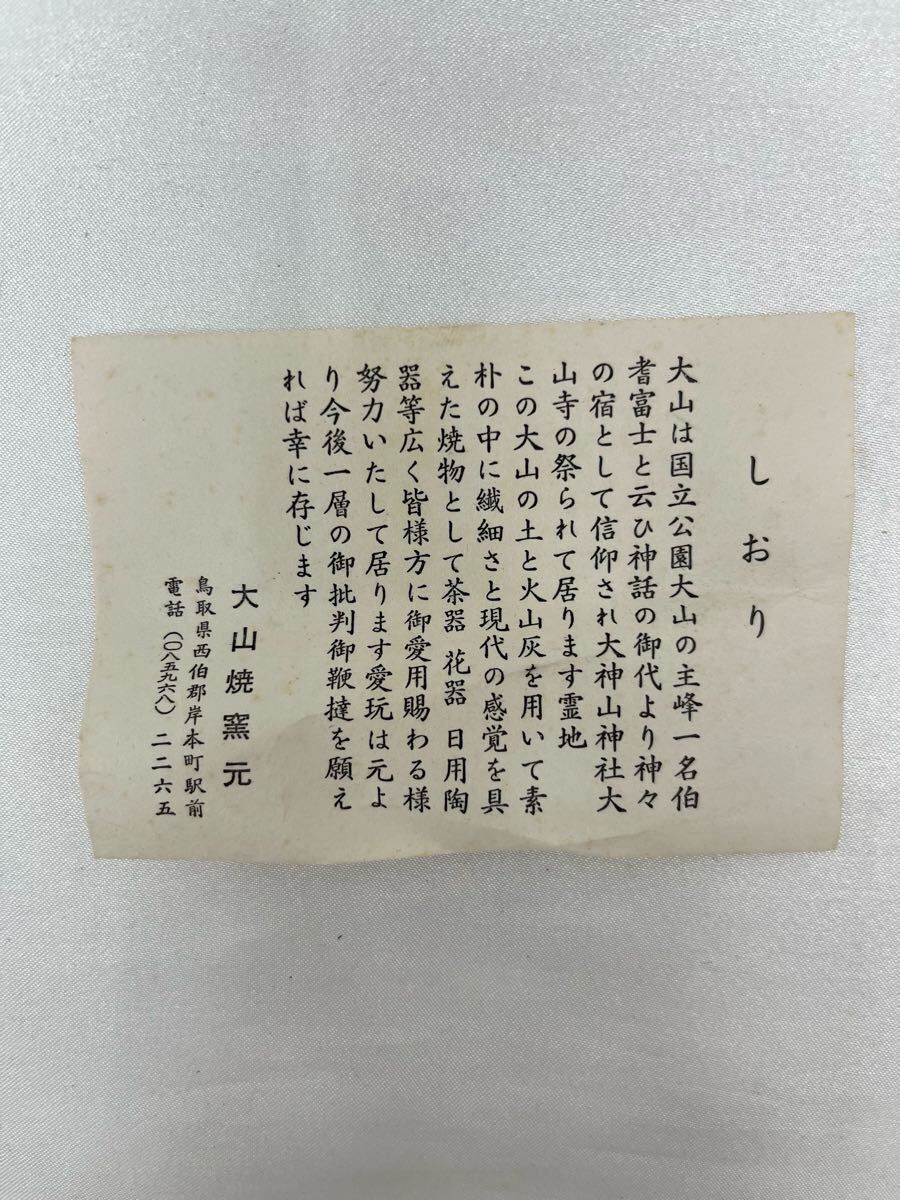 しおり
大山は国立公園大山の主峰一名伯
耆富士と云ひ神話の御代より神々
の宿として信仰され大神山神社大
山寺の祭られて居ります霊地
この大山の土と火山灰を用いて素
朴の中に繊細さと現代の感覚を具
えた焼物として茶器 花器 日用陶
器等広く皆様方に御愛用賜わる様
努力いたして居ります愛玩は元よ
り今後一層の御批判御鞭撻を願え
れば幸に存じます
大山焼窯元
鳥取県西伯郡岸本町駅前
電話(〇八五九六八)二二六五